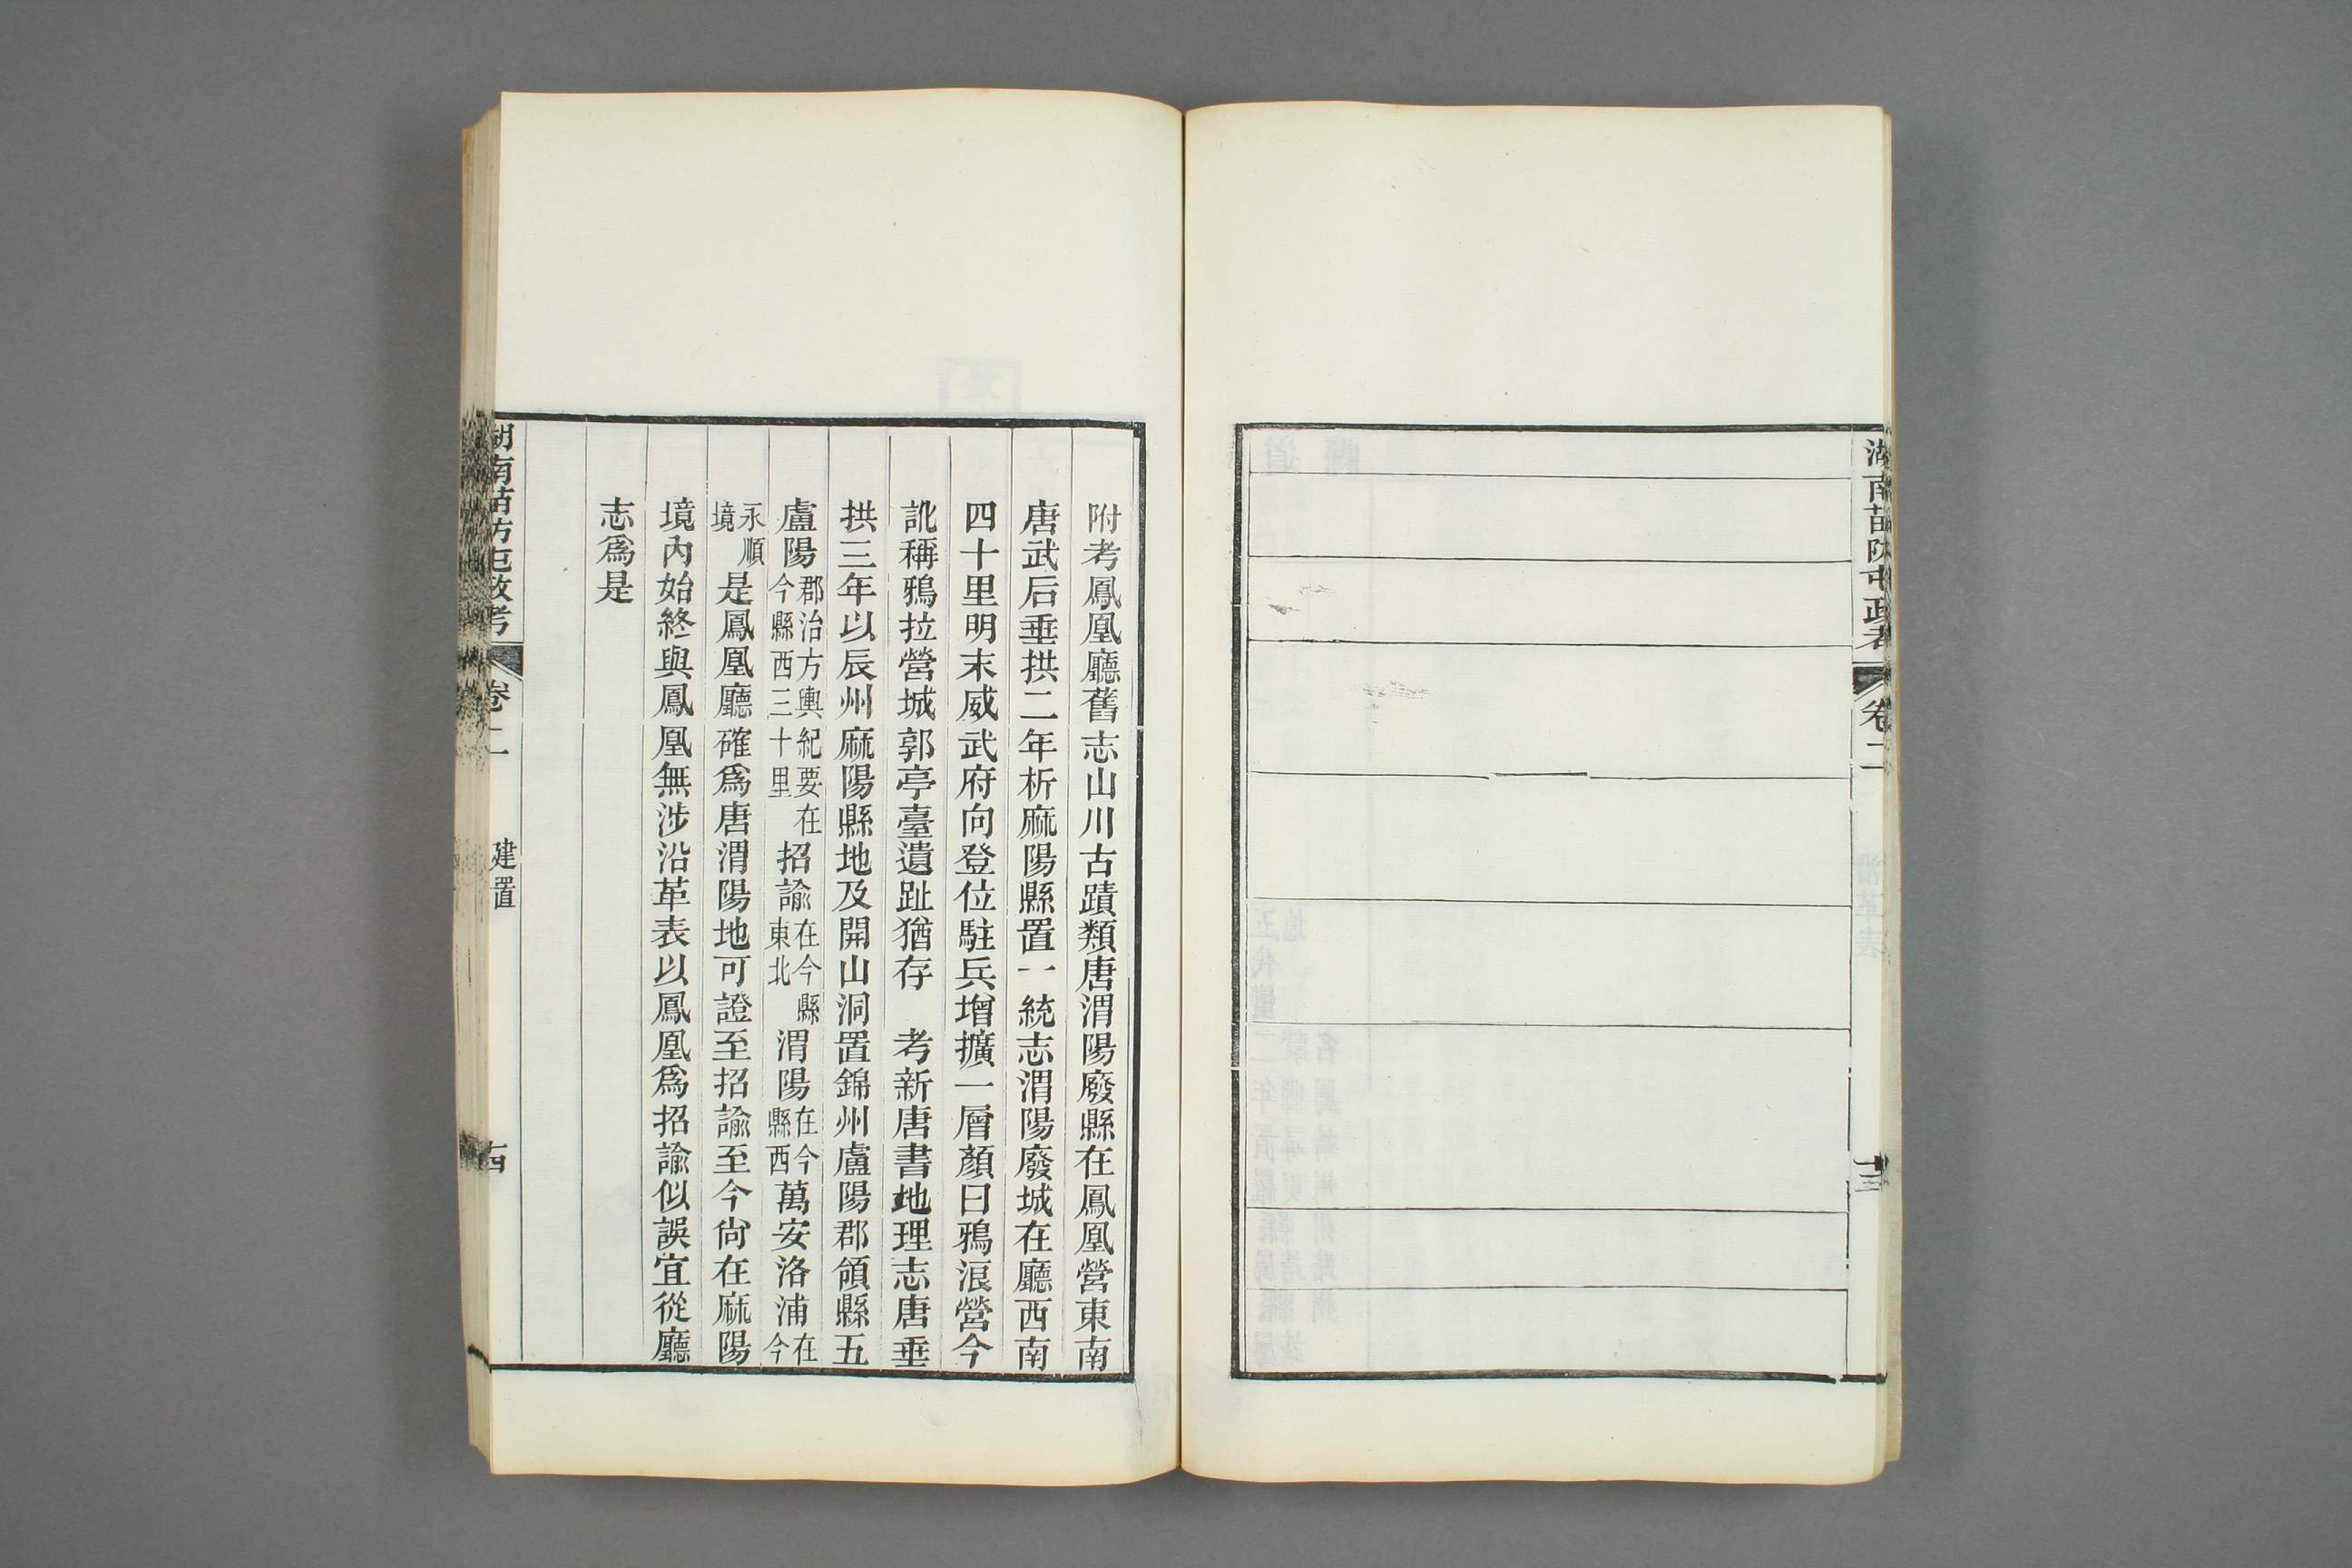 湖南苗防屯政考
卷二
十三
附考鳳凰廳舊志山川古蹟類唐渭陽廢縣在鳳凰營東南
唐武后垂拱二年析麻陽縣置一統志渭陽廢城在廳西南
四十里明末威武府向登位駐兵增擴一層顏曰鴉浪營今
訛稱鴉拉營城郭亭臺遺趾猶存　考新唐書地理志唐垂
拱三年以辰州麻陽縣地及開山洞置錦州盧陽郡領縣五
盧陽郡治方輿紀要在今縣西三十里招諭在今縣東北渭陽在今縣西萬安洛浦在今
永順境是鳳凰廳確爲唐渭陽地可證至招諭至今尙在麻陽
境內始終與鳳凰無涉沿革表以鳳凰爲招諭似誤宜從廳
志爲是
湖南苗防屯政考
卷二
建置
十四